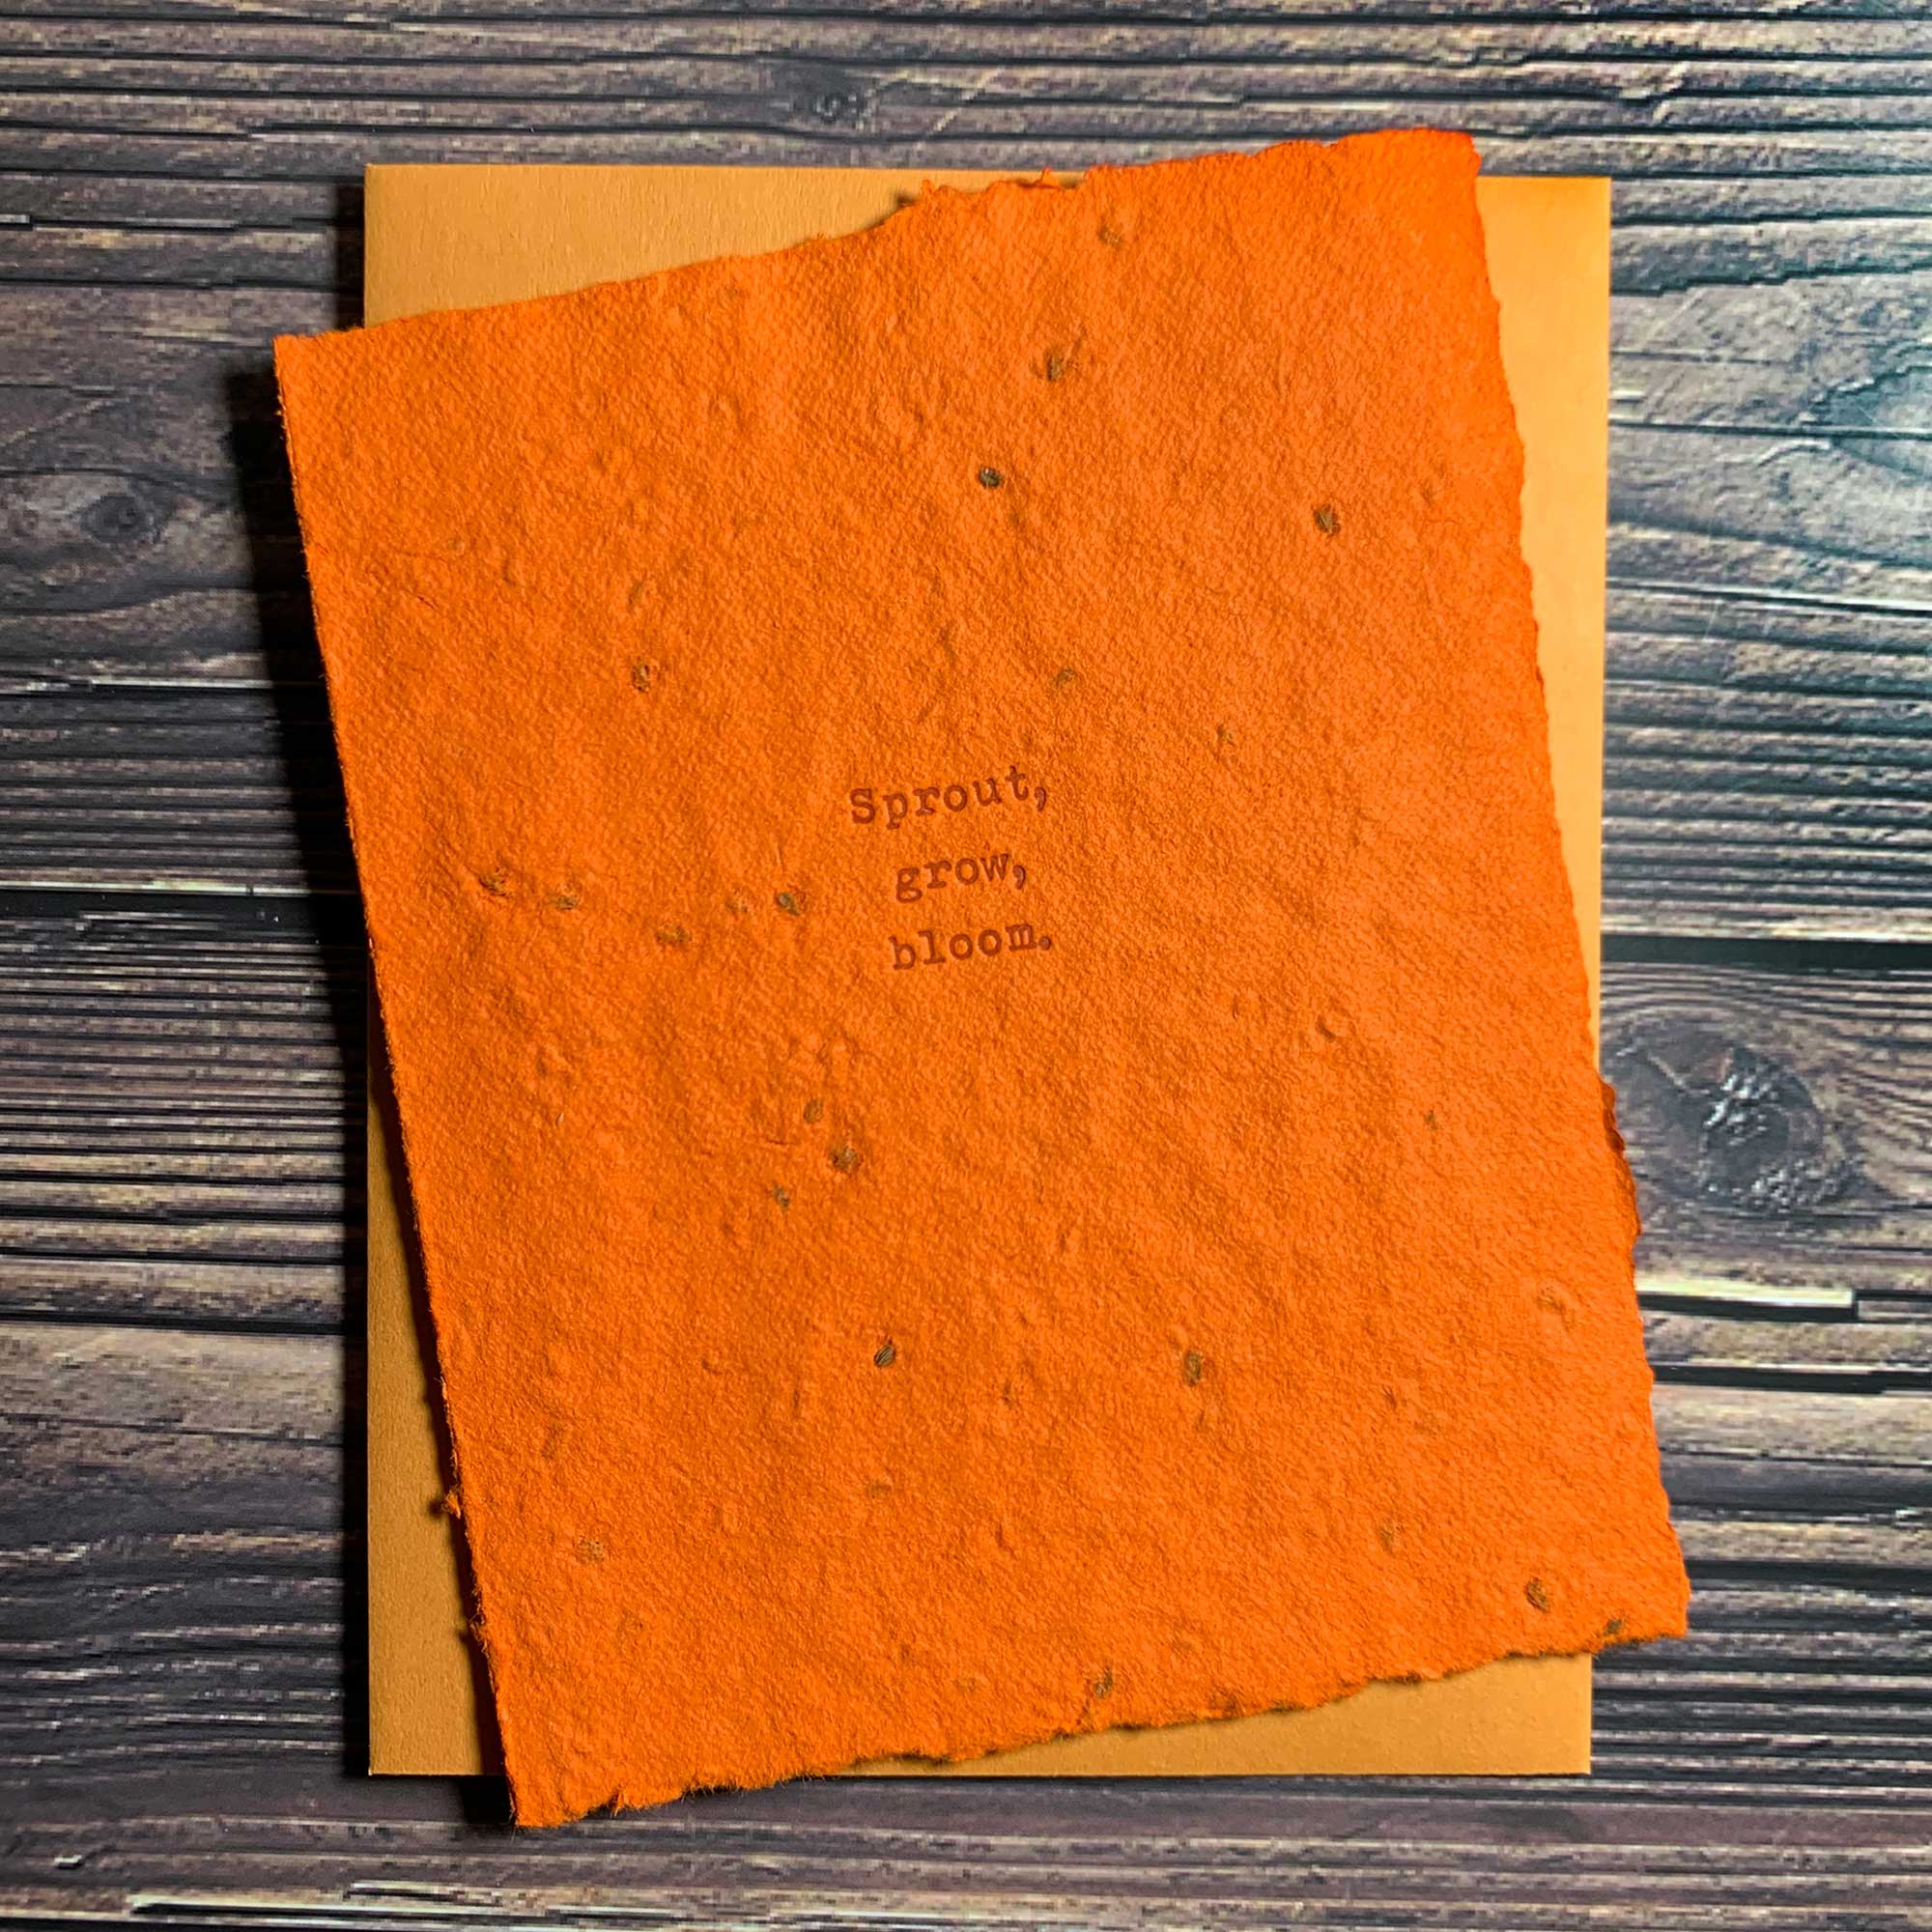 Sprout,
grow,
bloom.